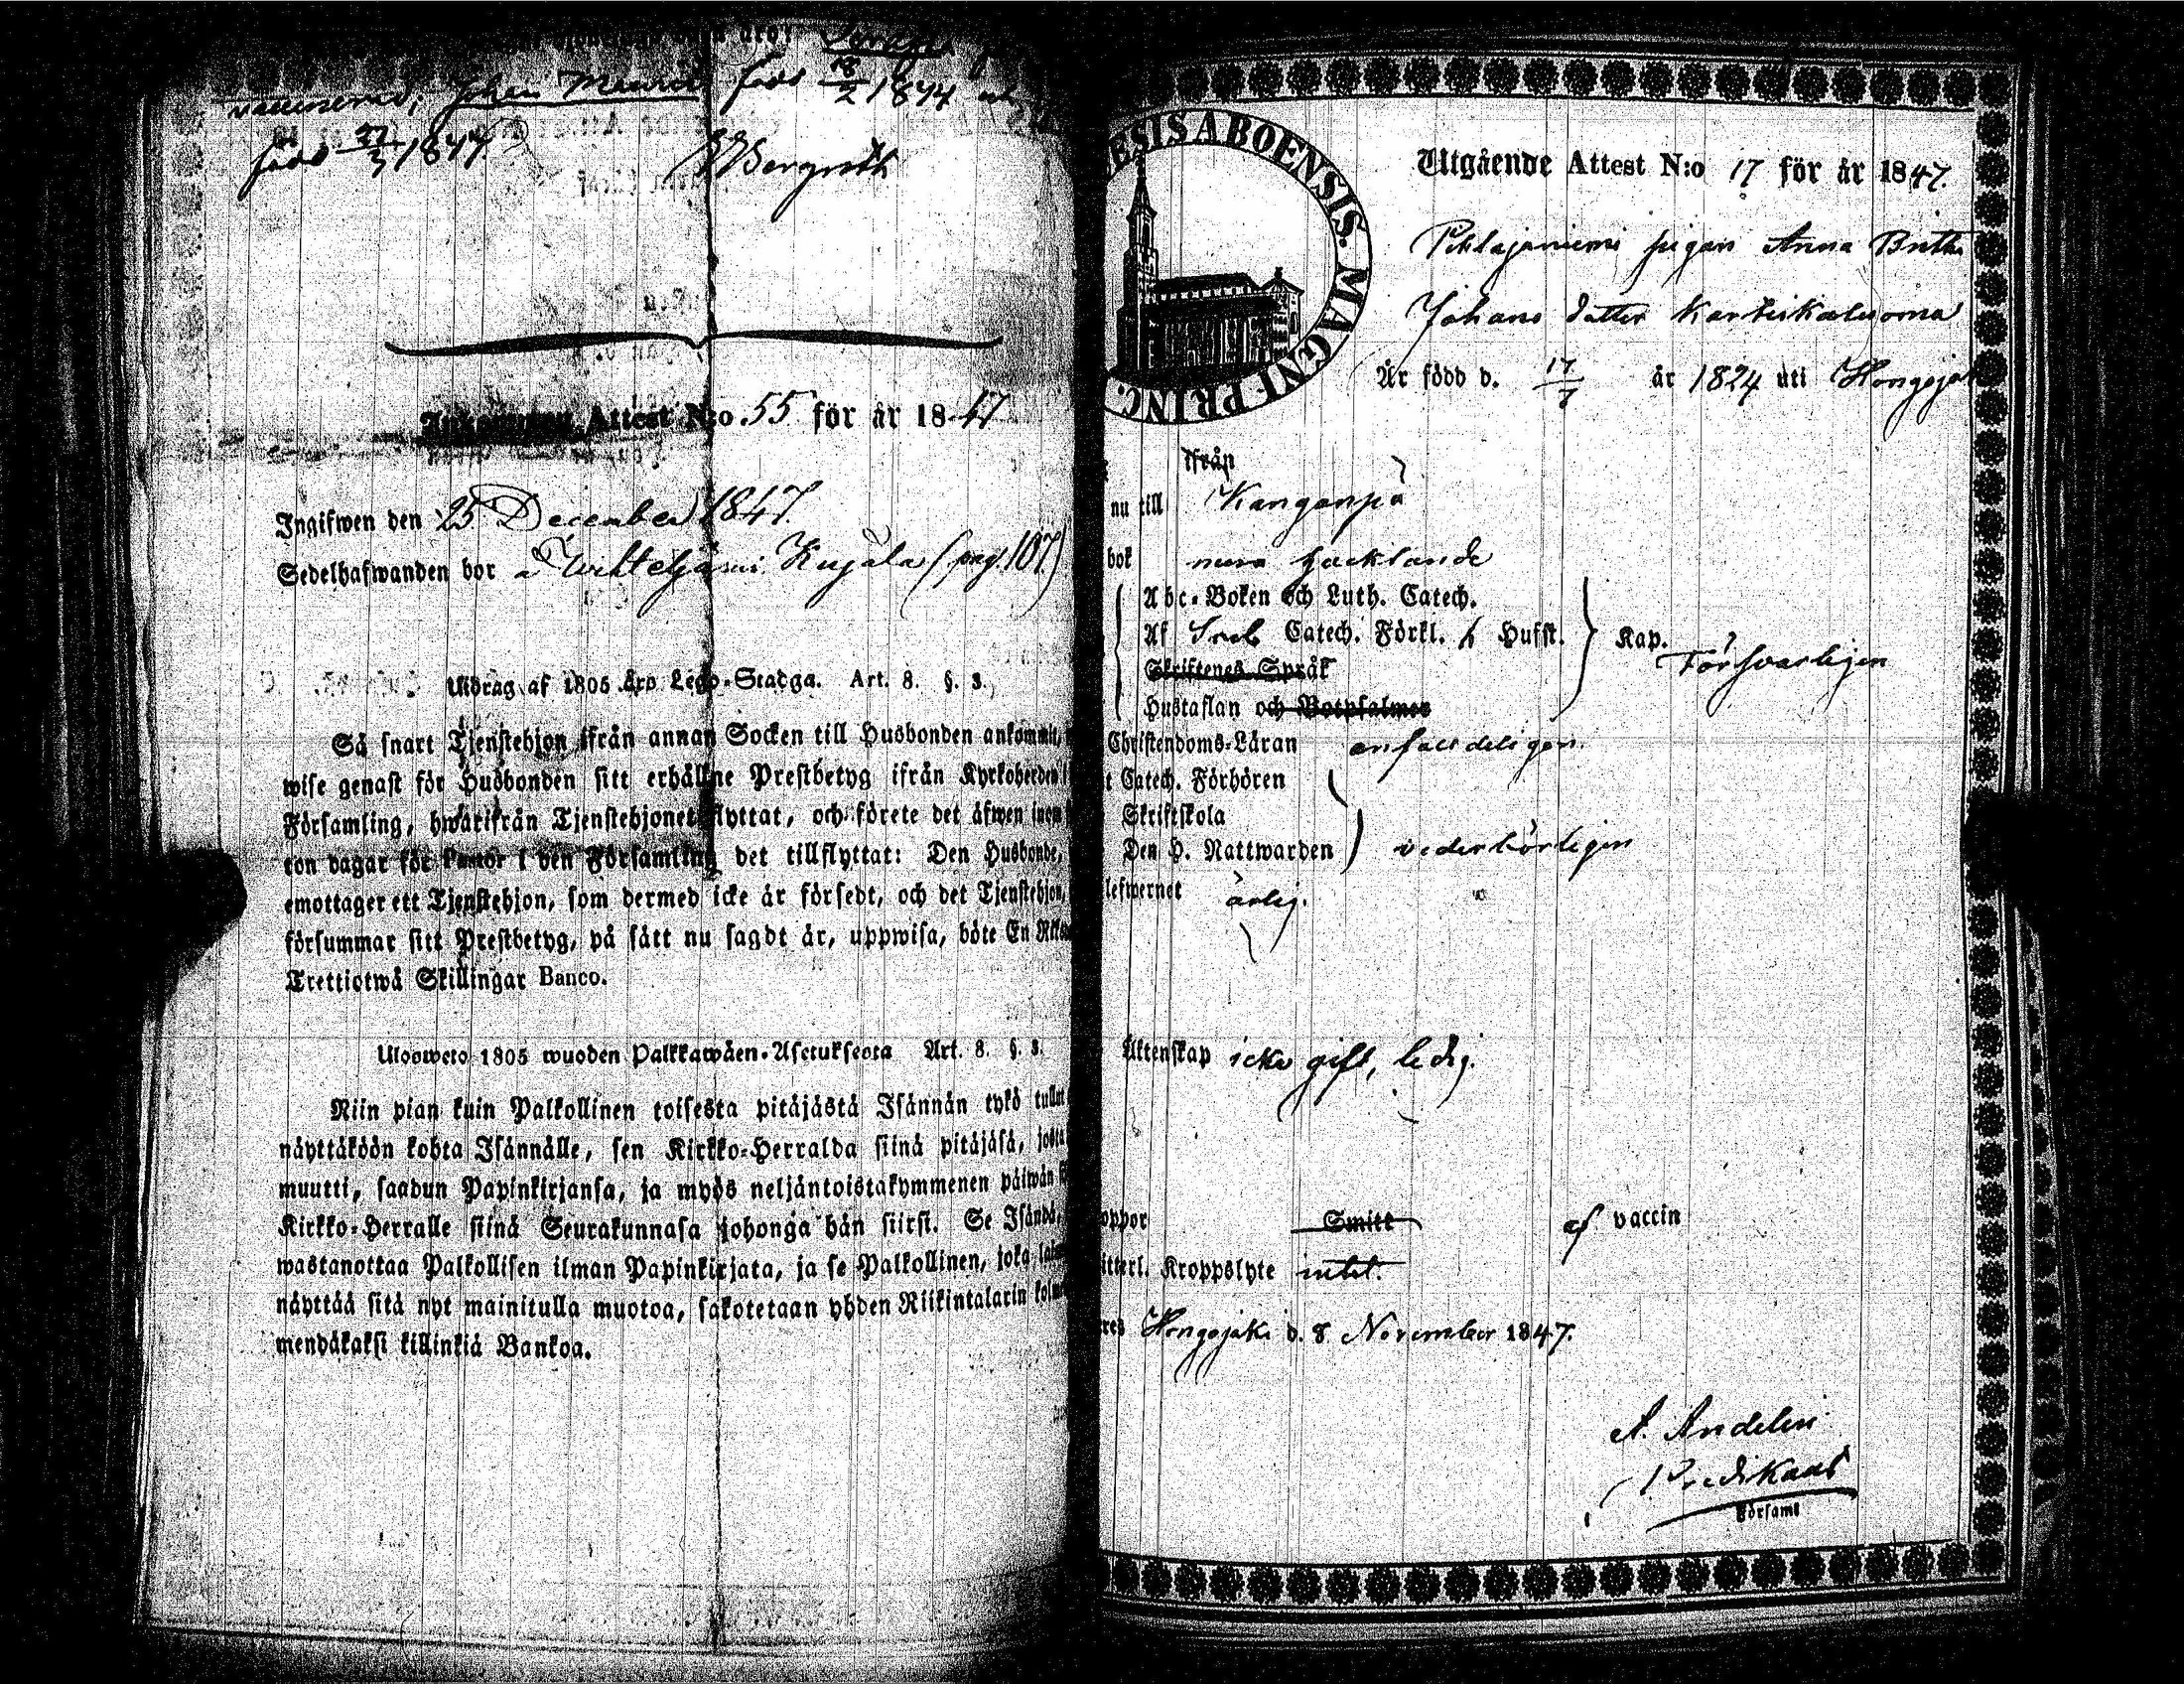 född 18/2 1844
född 27/3 1847.
Attest N:o 55 för år 1847
Ingifwen den 25 December 1847.
Sedelhafwanden bor å Kujala (pag. 107)
Utdrag af 1805 års Lego-Stadga. Art. 8. §. 3.
Så snart Tjenstehjon ifrån annan Socken till Husbonden ankommit,
wise genast för Husbonden sitt erhållne Prestbetyg ifrån Kyrkoherden i
Församling, hwarifrån Tjenstehjonet flyttat, och förete det äfwen inom
ton dagar för i den Församling det tillflyttat: Den Husbonde,
emottager ett Tjenstehjon, som dermed icke är försedt, och det Tjenstehjon,
försummar sitt Prestbetyg, på sätt nu sagdt är, uppwisa, böte En
Trettiotwå Skillingar Banco.
Ulosweto 1805 wuoden Palkkawäen-Asetuksesta Art. 8. §. 3.
Niin pian kuin Palkollinen toisesta pitäjästä Isännän tykö tullut
näyttäköön kohta Isännälle, sen Kirkko-Herralda siinä pitäjäsä, josta
muutti, saadun Papinkirjansa, ja myös neljäntoistakymmenen päiwän
Kirkko-Herralle siinä Seurakunnasa johonga hän siirsi. Se Isändä,
wastanottaa Palkollisen ilman Papinkirjata, ja se Palkollinen, joka
näyttää sitä nyt mainitulla muotoa, sakotetaan yhden Riikintalarin kolme
mendäkaksi killinkiä Bankoa.
ESIS ABOENSIS. MAGNI PRINC.
Utgående Attest N:o 17 för år 1847.
pigan Anna Britha
Johans dotter
Är född d. 17/7 år 1824 uti Hongojoki
ifrån
nu till Kanganpä
bok
Abc-Boken och Luth. Catech.
Af Sveb Catech. Förkl. Hufst. Kap. Försvarligen
Skriftenes Språk
Hustaflan och Botpsalmer
Christendoms-Läran enfaldeligen.
t Catech. Förhören
Skriftskola
Den H. Nattwarden vederbörligen
lefwernet ärlig.
Äktenskap icke gift, ledig.
oppor Smitt af vaccin
itterl. Kroppslyte intet.
res Hongojoki d. 8 November 1847.
A. Andelin
Predikant
Församl